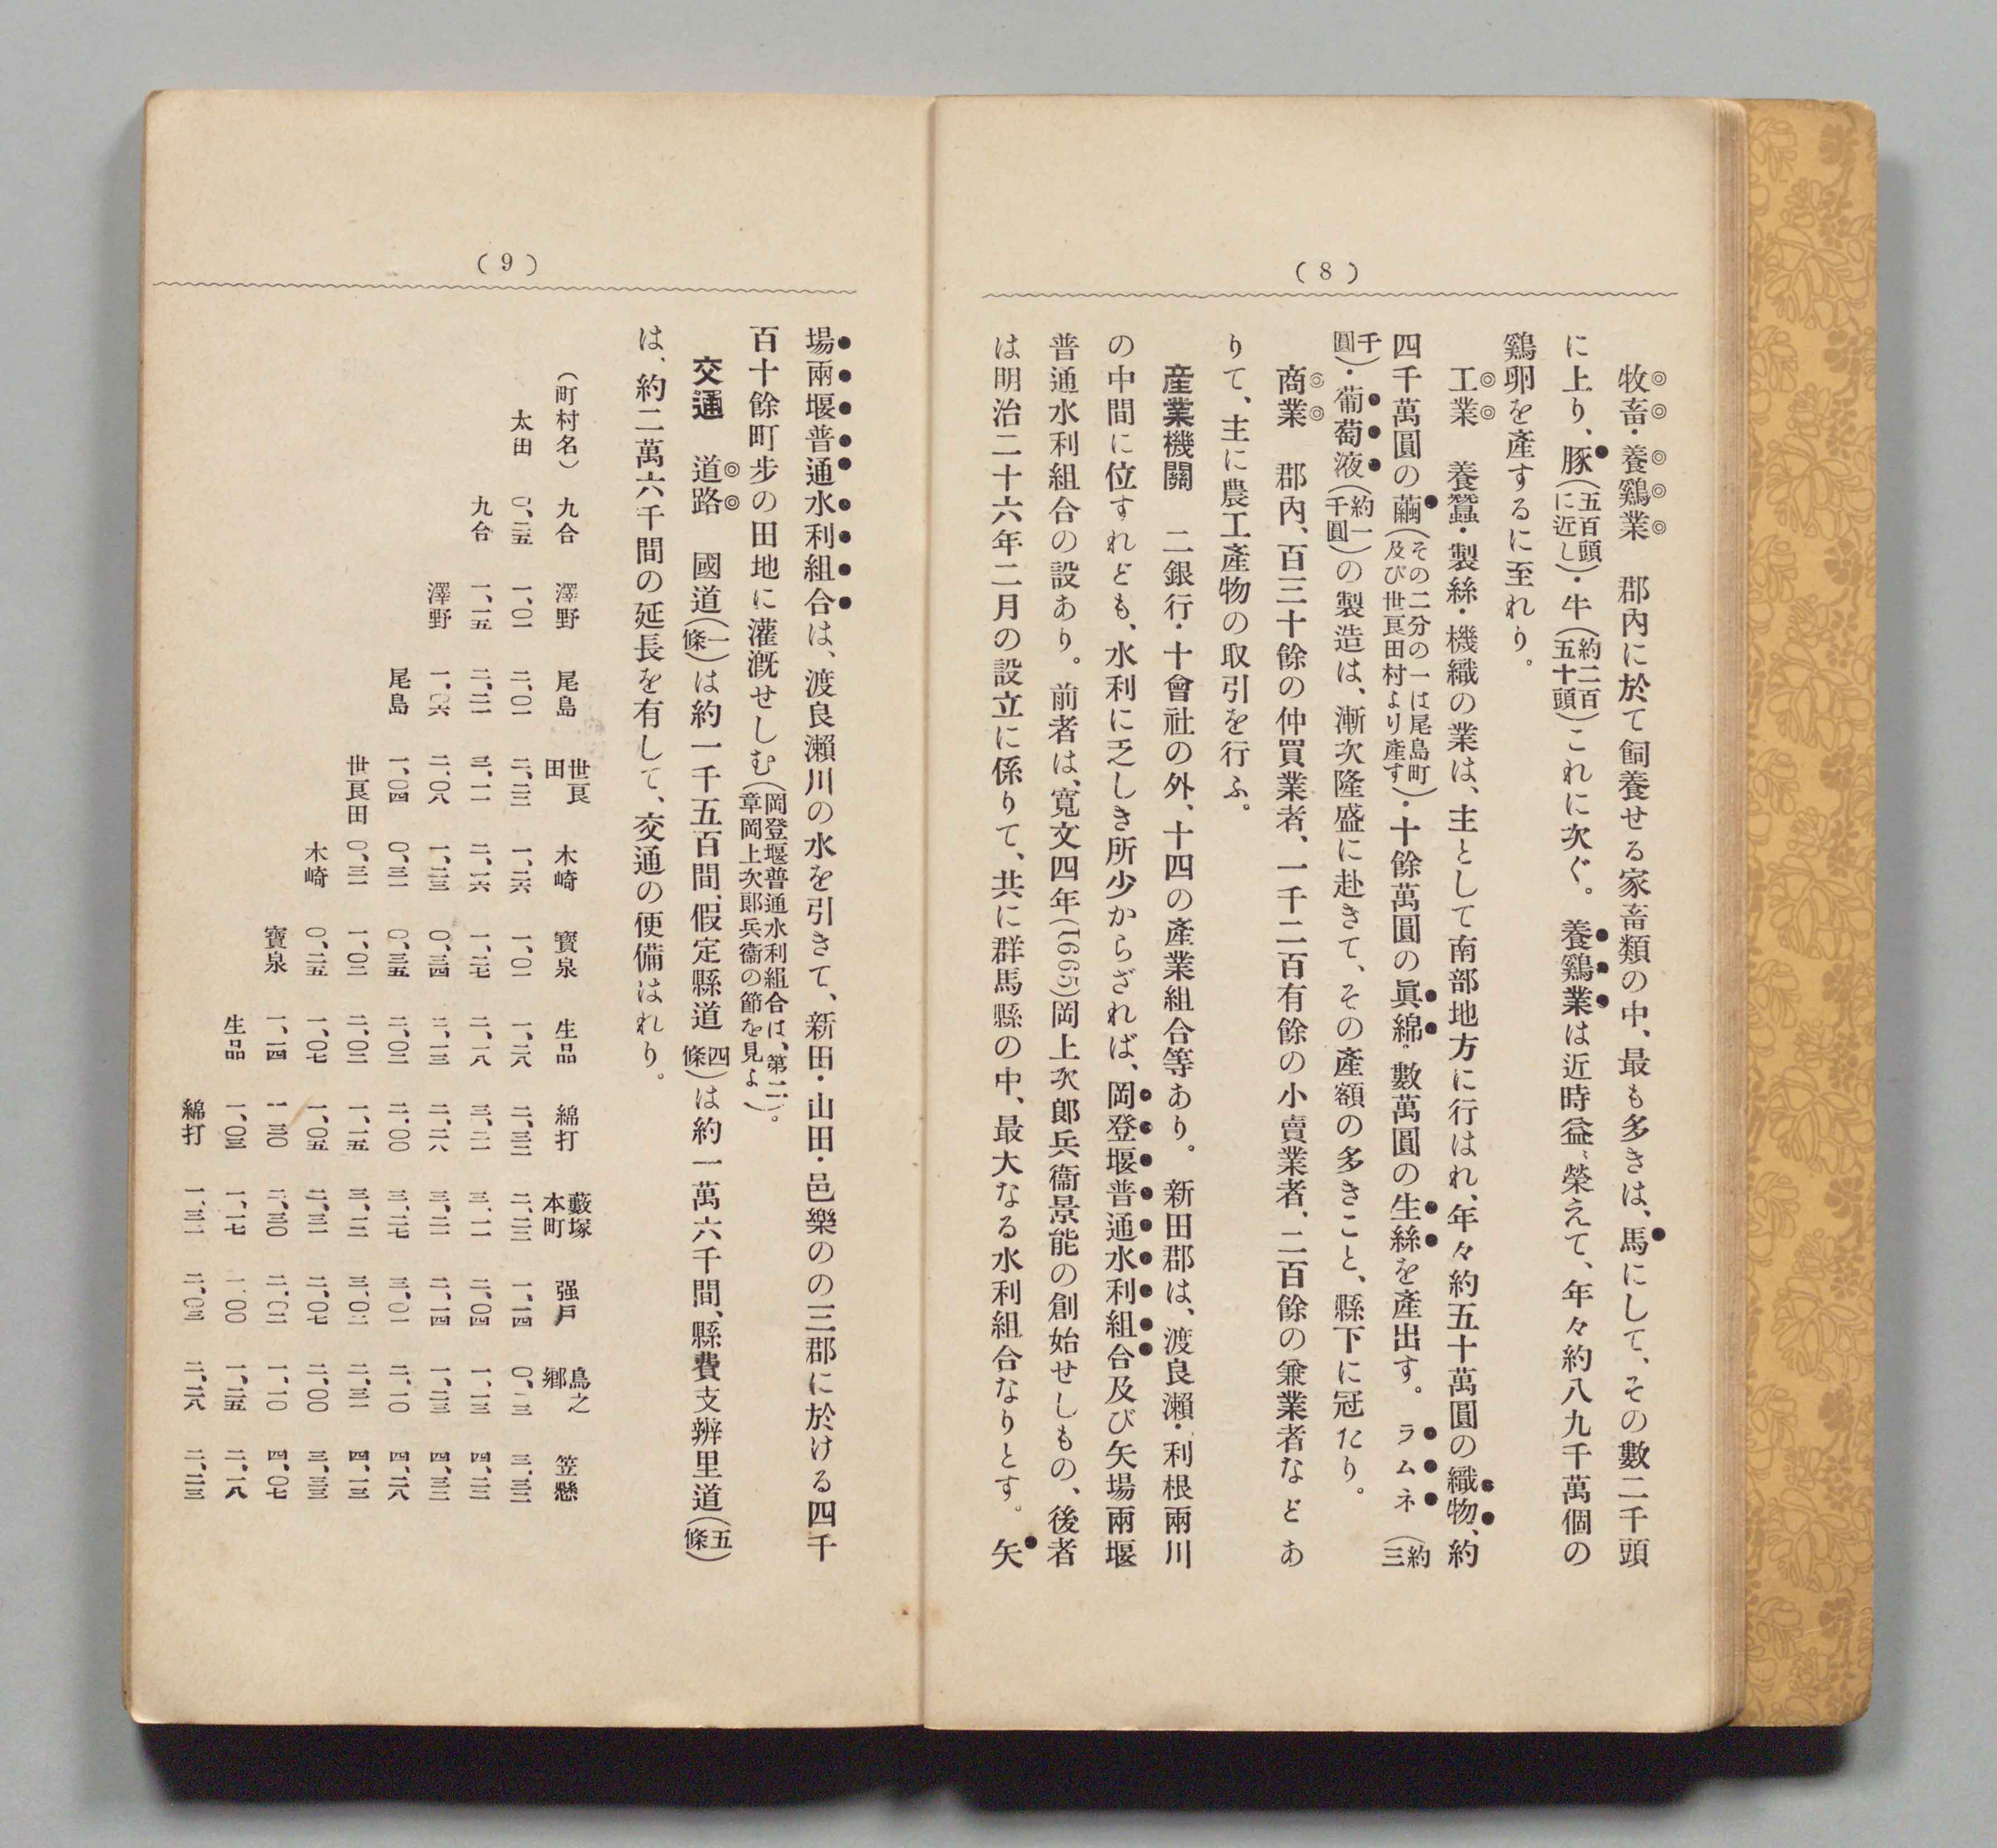 (8)
牧畜・養鷄業　郡內に於て飼養せる家畜類の中、最も多きは、馬にして、その數二千頭
に上り、豚（五百頭に近し）・牛（約二百五十頭）これに次ぐ。養鷄業は近時益〻榮えて、年々約八九千萬個の
鷄卵を產するに至れり。
工業　養蠶・製絲・機織の業は、主として南部地方に行はれ、年々約五十萬圓の織物、約
四千萬圓の繭（その二分の一は尾島町及び世良田村より產す）・十餘萬圓の眞綿・數萬圓の生絲を產出す。ラムネ（約三
千圓）・葡萄液（約一千圓）の製造は、漸次隆盛に赴きて、その產額の多きこと、縣下に冠たり。
商業　郡內、百三十餘の仲買業者、一千二百有餘の小賣業者、二百餘の兼業者などあ
りて、主に農工產物の取引を行ふ。
産業機關　二銀行・十會社の外、十四の產業組合等あり。新田郡は、渡良瀨・利根兩川
の中間に位すれども、水利に乏しき所少からざれば、岡登堰普通水利組合及び矢場兩堰
普通水利組合の設あり。前者は、寬文四年(1665)岡上次郞兵衞景能の創始せしもの、後者
は明治二十六年二月の設立に係りて、共に群馬縣の中、最大なる水利組合なりとす。矢
(9)
場兩堰普通水利組合は、渡良瀨川の水を引きて、新田・山田・邑樂のの三郡に於ける四千
百十餘町步の田地に灌漑せしむ（岡登堰普通水利組合は、第二章岡上次郞兵衞の節を見よ）。
交通　道路　國道（一條）は約一千五百間、假定縣道　四條）は約一萬六千間、縣費支辨里道（五條）
は、約二萬六千間の延長を有して、交通の便備はれり。
（町村名）　九合　澤野　尾島　世良田　木崎　寶泉　生品　綿打　藪塚本町　强戶　鳥之鄕　笠懸
太田　〇、三五　一、〇一　二、〇一　二、三三　一、二六　一、〇一　一、二八　二、三三　二、三三　一、一四　〇、二三　三、三三
九合　一、一五　二、二一　三、一一　二、一六　一、二七　二、一八　三、二一　三、一一　二、〇四　一、一三　四、二三
澤野　一、〇六　二、〇八　一、二三　〇、三四　二、一三　二、二八　三、二一　二、一四　一、二三　四、三二
尾島　一、〇四　〇、三一　〇、三五　二、〇二　二、〇〇　三、二七　三、〇一　二、一〇　四、二八
世良田　〇、三一　一、〇二　二、〇二　一、一五　三、二二　三、〇二　二、三一　四、一三
木崎　〇、二五　一、〇七　一、〇五　二、三一　二、〇七　二、〇〇　三、三三
寶泉　一、一四　一、三〇　二、三〇　二、〇二　一、一〇　四、〇七
生品　一、〇三　一、一七　一、〇〇　一、二五　二、一八
綿打　一、三一　二、〇三　二、二八　二、二三